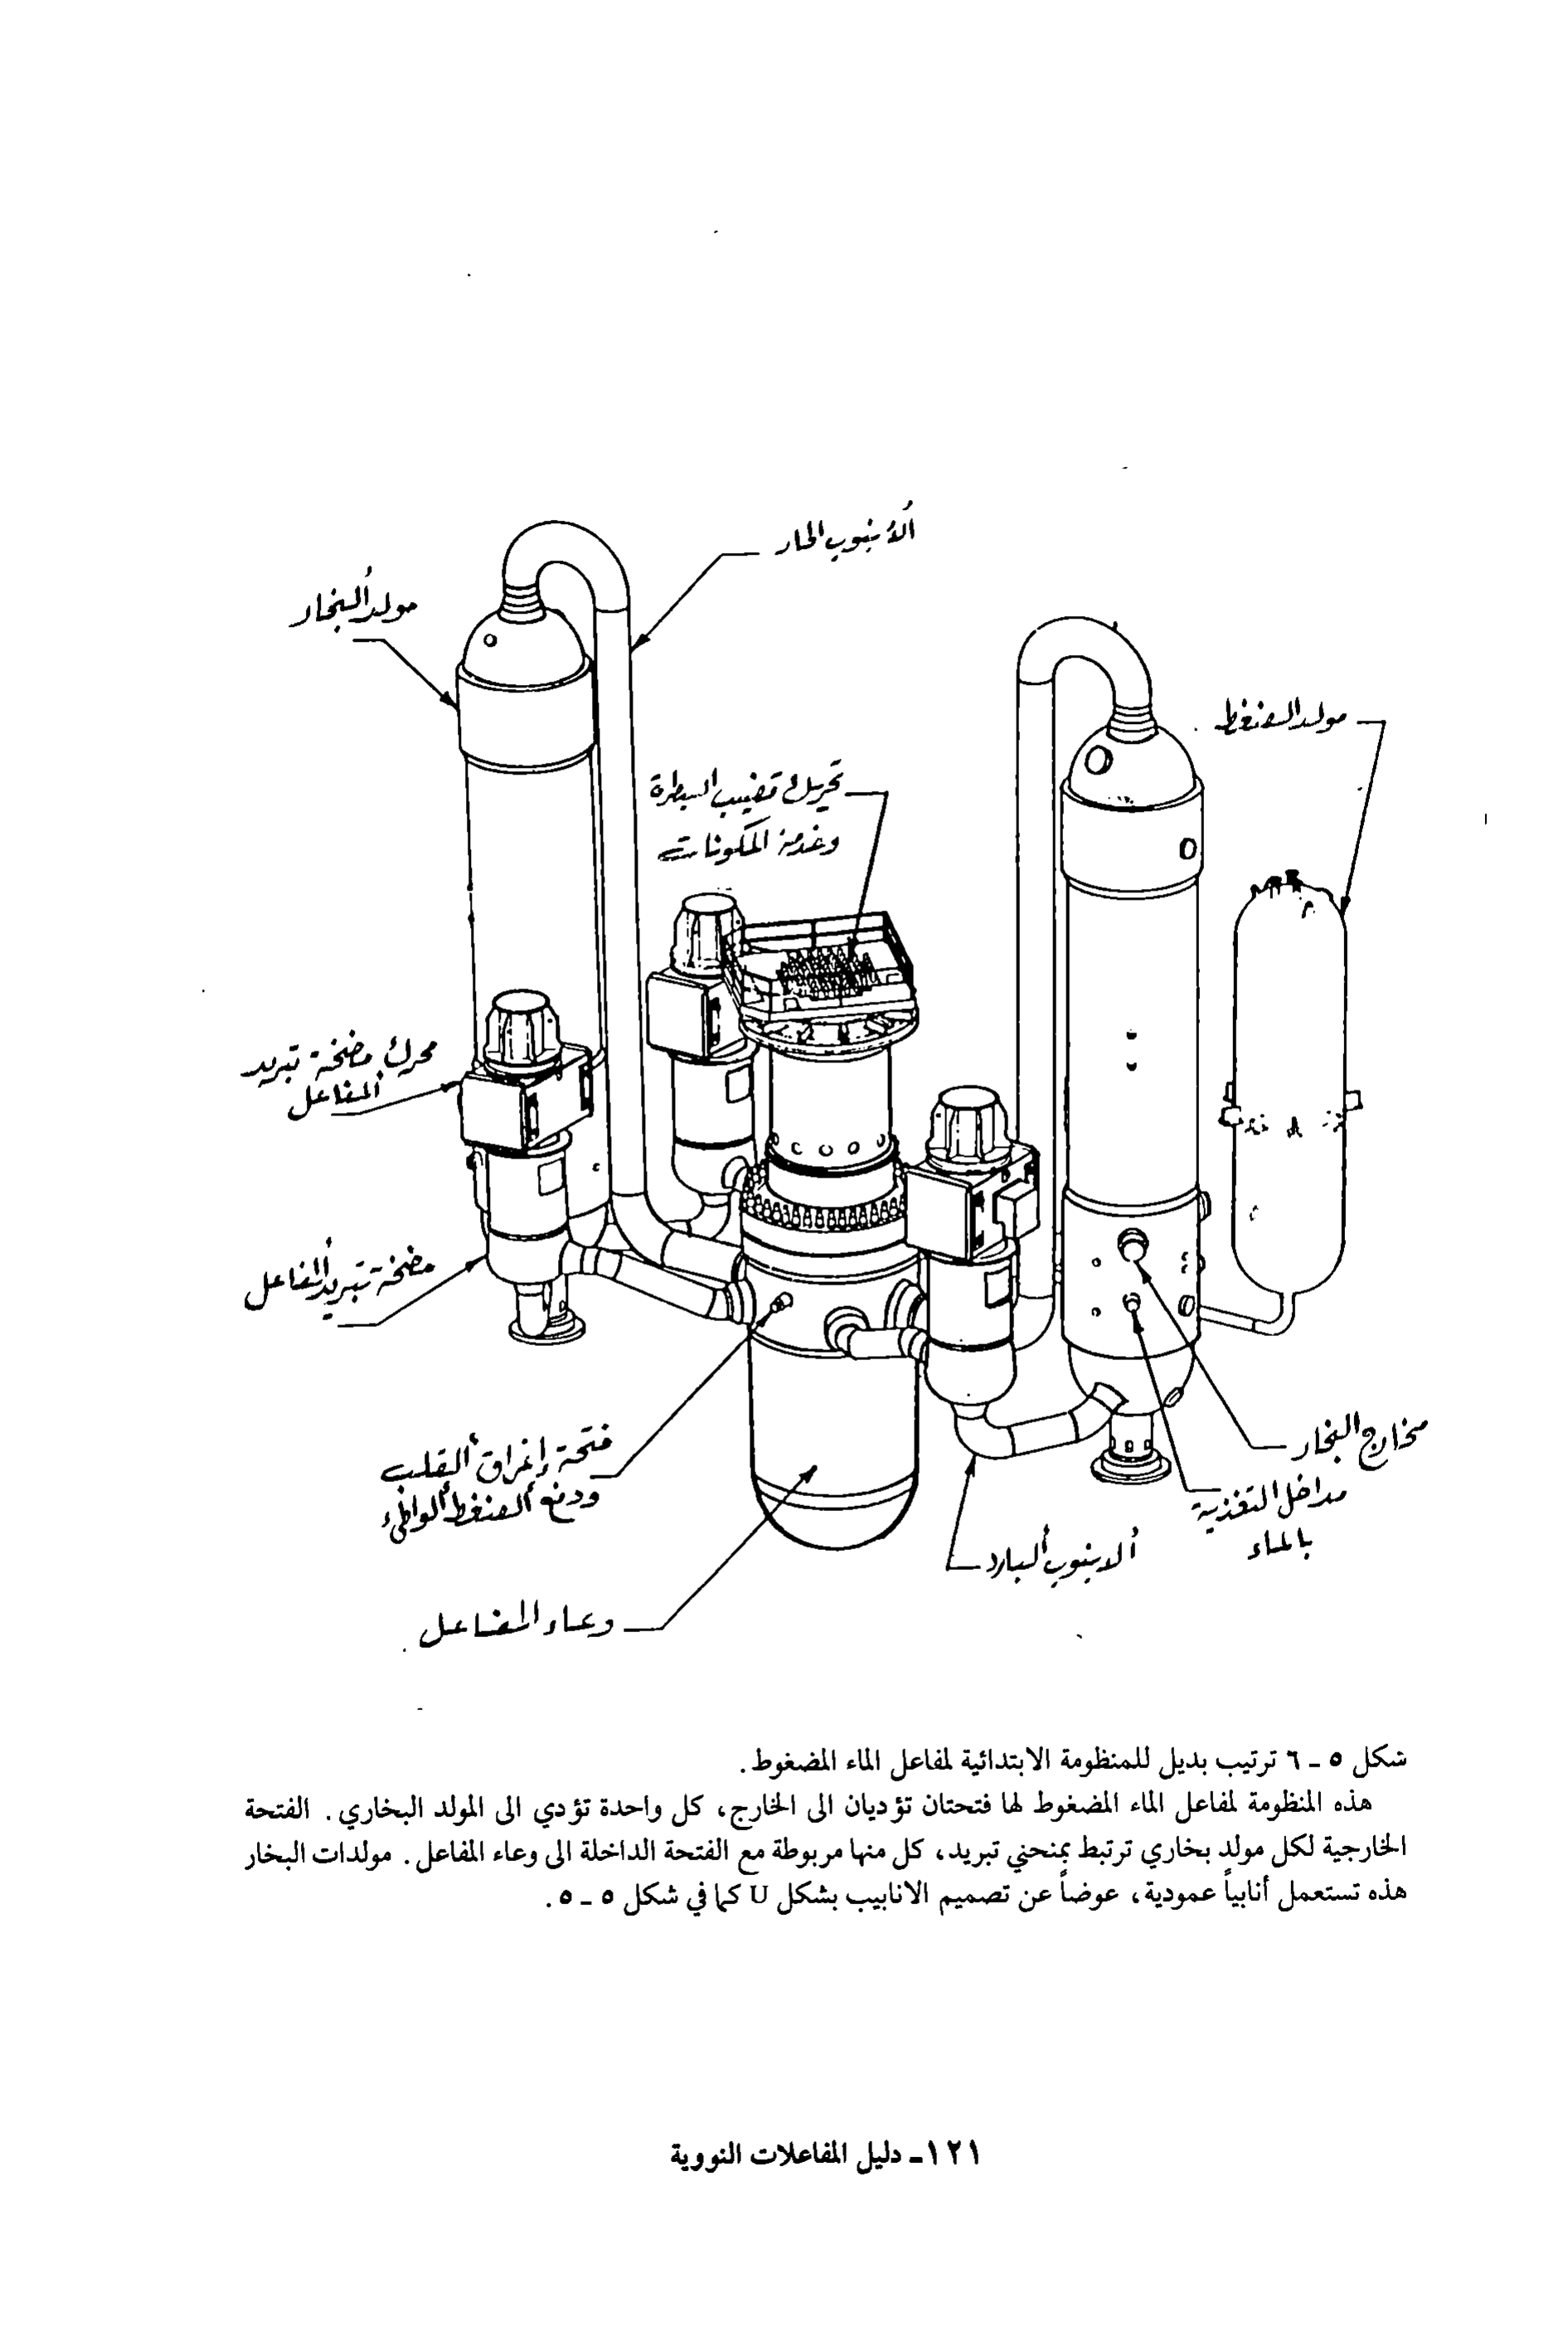 الأنبوب الحار
مولد البخار
مولد الضغط
تحريك قضيب السيطرة
وغرفة المكونات
محرك مضخة تبريد
المفاعل
مضخة تبريد المفاعل
فتحة إغراق القلب
ودفع الضغط الواطيء
مخارج البخار
مداخل التغذية
بالماء
الانبوب البارد
وعاء المفاعل
شكل ٥ - ٦ ترتيب بديل للمنظومة الابتدائية لمفاعل الماء المضغوط.
هذه المنظومة لمفاعل الماء المضغوط لها فتحتان تؤديان الى الخارج، كل واحدة تؤدي الى المولد البخاري. الفتحة
الخارجية لكل مولد بخاري ترتبط بمنحني تبريد، كل منها مربوطة مع الفتحة الداخلة الى وعاء المفاعل. مولدات البخار
هذه تستعمل أنابياً عمودية، عوضاً عن تصميم الانابيب بشكل U كما في شكل ٥ - ٥.
١٢١- دليل المفاعلات النووية